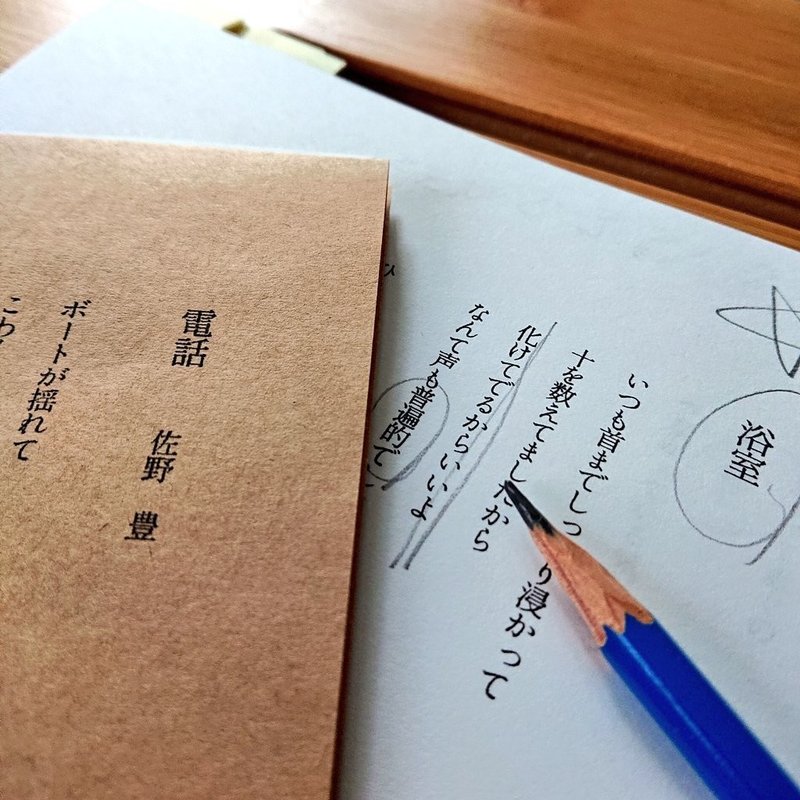 浴室
いつも首までしっ り浸かって
十を数えてましたから
化けてでるからいいよ
なんて声も普遍的で
電話 佐野 豊
ボートが揺れて
こわ